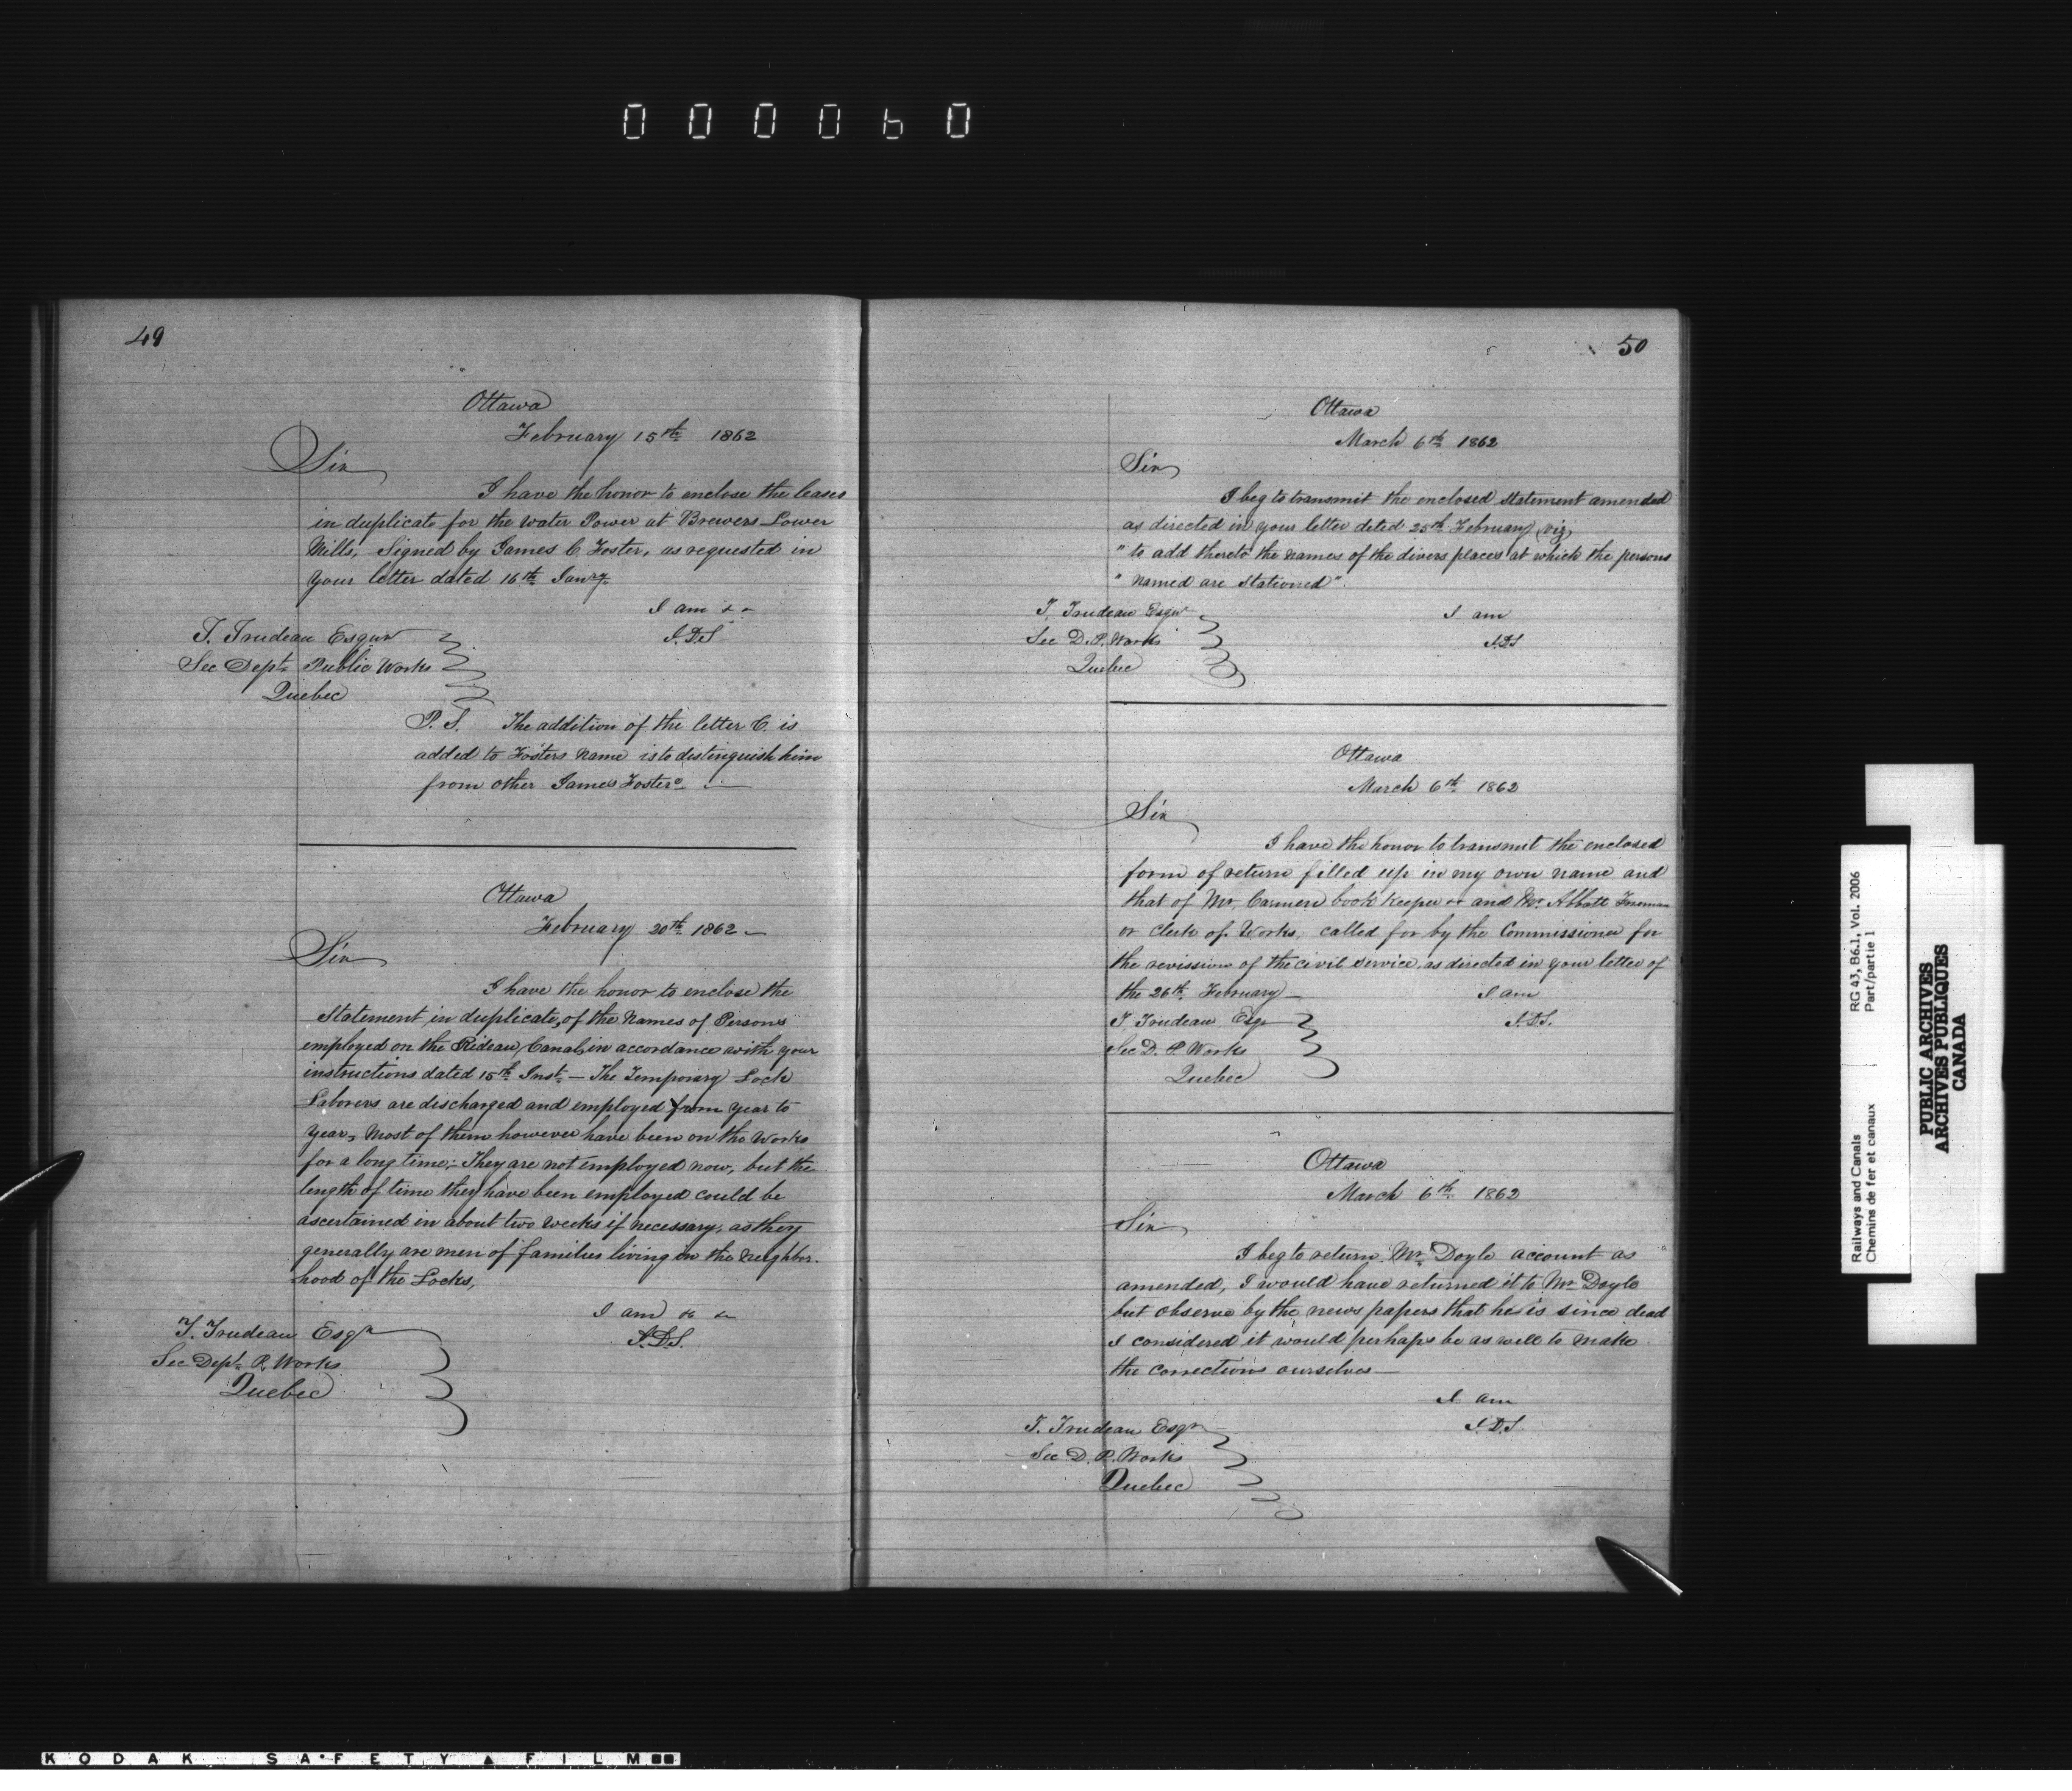 000060
49
Ottawa
February 15th 1862
Sir
I have the honor to enclose the leases
in duplicate for the Water Power at Brewers Lower
Mills, Signed by James C. Foster, as requested in
your letter dated 16th Jany
I am & &
J.D.S
T. Trudeau Esqur
Sec Dept Public Works
Quebec
P.S. The addition of the letter C. is
added to Fosters name is to distinguish him
from other James Fosters
Ottawa
February 20th 1862
Sir
I have the honor to enclose the
Statement in duplicate, of the Names of Persons
employed on the Rideau Canal, in accordance with your
instructions dated 15th Inst - The Temporary Lock
Laborers are discharged and employed from year to
year, Most of them however have been on the Works
for a long time; They are not employed now, but the
length of time they have been employed could be
ascertained in about two weeks if necessary, as they
generally are men of families living in the neighbor-
hood of the Locks,
I am & &
J.D.S.
T. Trudeau Esqr
Sec Dept P. Works
Quebec
50
Ottawa
March 6th 1862
Sir
I beg to transmit the enclosed Statement amended
as directed in your letter dated 25th February (viz)
" to add thereto the names of the divers places at which the persons
" named are Stationed"
I am
J.D.S
T. Trudeau Esqur
Sec D.P. Works
Quebec
Ottawa
March 6th 1862
Sir
I have the honor to transmit the enclosed
form of return filled up in my own name and
that of Mr. book Keeper and Mr. Abbott Foreman
or clerk of Works, called for by the Commissioner for
the revission of the civil service, as directed in your letter of
the 26th February -
I am
J.D.S.
T. Trudeau Esqr
Sec D. P. Works
Quebec
Ottawa
March 6th 1862
Sir
I beg to return Mr. Doyle account as
amended, I would have returned it to Mr Doyle
but observe by the news papers that he is since dead
I considered it would perhaps be as well to make
the corrections ourselves -
I am
J.D.S
T. Trudeau Esqr
Sec D. P. Works
Quebec
Railways and Canals
Chemins de fer et canaux
RG 43, B6.1, Vol. 2006
Part/partie 1
PUBLIC ARCHIVES
ARCHIVES PUBLIQUES
CANADA
KODAK SAFETY FILM